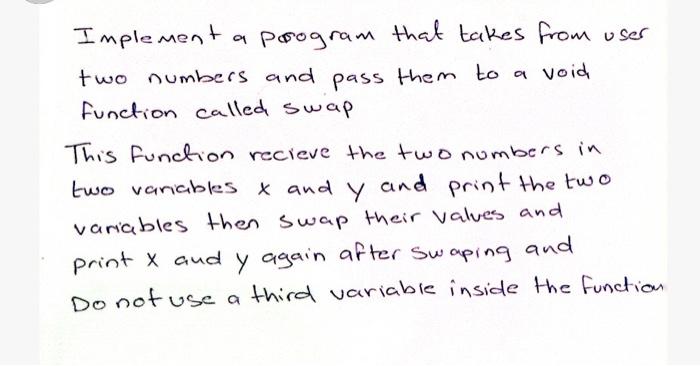 Implement a porogram that takes from user
two numbers and pass them to a void
function called swap
This function recieve the two numbers in
two variables x and y and print the two
variables then swap their values and
print x and y again after swaping and
Do not use a third variable inside the function